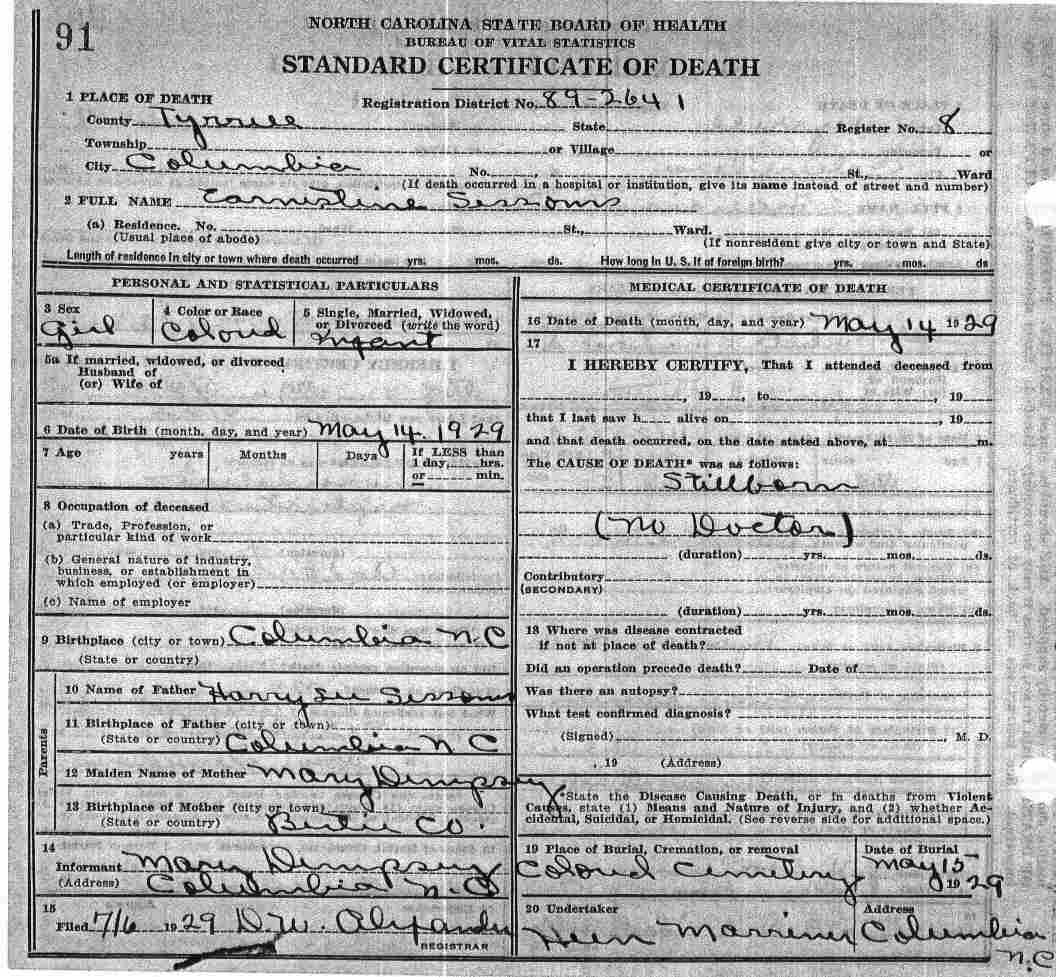 91
NORTH CAROLINA STATE BOARD OF HEALTH
BUREAU OF VITAL STATISTICS
STANDARD CERTIFICATE OF DEATH
1 PLACE OF DEATH Registration District No. 89-2641
County Tyrrell State Register No. 8
Township or Village or
City Columbia No. , St., Ward
(If death occurred in a hospital or institution, give its name instead of street and number)
2 FULL NAME Earnistine Sessoms
(a) Residence. No. St., Ward.
(Usual place of abode) (If nonresident give city or town and State)
Length of residence in city or town where death occurred yrs. mos. ds. How long in U. S. if of foreign birth? yrs. mos. ds
PERSONAL AND STATISTICAL PARTICULARS
3 Sex 4 Color or Race 5 Single, Married, Widowed,
or Divorced (write the word)
Girl Colord Infant
5a If married, widowed, or divorced
Husband of
(or) Wife of
6 Date of Birth (month, day, and year) May 14. 1929
7 Age years Months Days If LESS than
1 day, hrs.
or min.
8 Occupation of deceased
(a) Trade, Profession, or
particular kind of work
(b) General nature of industry,
business, or establishment in
which employed (or employer)
(c) Name of employer
9 Birthplace (city or town) Columbia N.C
(State or country)
Parents
10 Name of Father Harry Lee Sessoms
11 Birthplace of Father (city or town)
(State or country) Columbia N C
12 Maiden Name of Mother Mary Dempsey
13 Birthplace of Mother (city or town)
(State or country) Bertie Co.
14
Informant Mary Dempsey
(Address) Columbia N.C
15
Filed 7/6 1929 D.W. Alexander
REGISTRAR
MEDICAL CERTIFICATE OF DEATH
16 Date of Death (month, day, and year) May 14 1929
17
I HEREBY CERTIFY, That I attended deceased from
, 19 , to , 19
that I last saw h alive on , 19
and that death occurred, on the date stated above, at m.
The CAUSE OF DEATH* was as follows:
Stillborn
(No Doctor)
(duration) yrs. mos. ds.
Contributory
(SECONDARY)
(duration) yrs. mos. ds.
18 Where was disease contracted
if not at place of death?
Did an operation precede death? Date of
Was there an autopsy?
What test confirmed diagnosis?
(Signed) , M. D.
, 19 (Address)
*State the Disease Causing Death, or in deaths from Violent
Causes, state (1) Means and Nature of Injury, and (2) whether Ac-
cidental, Suicidal, or Homicidal. (See reverse side for additional space.)
19 Place of Burial, Cremation, or removal Date of Burial
Colord Cemetery May 15 1929
20 Undertaker Address
Marriner Columbia
N.C